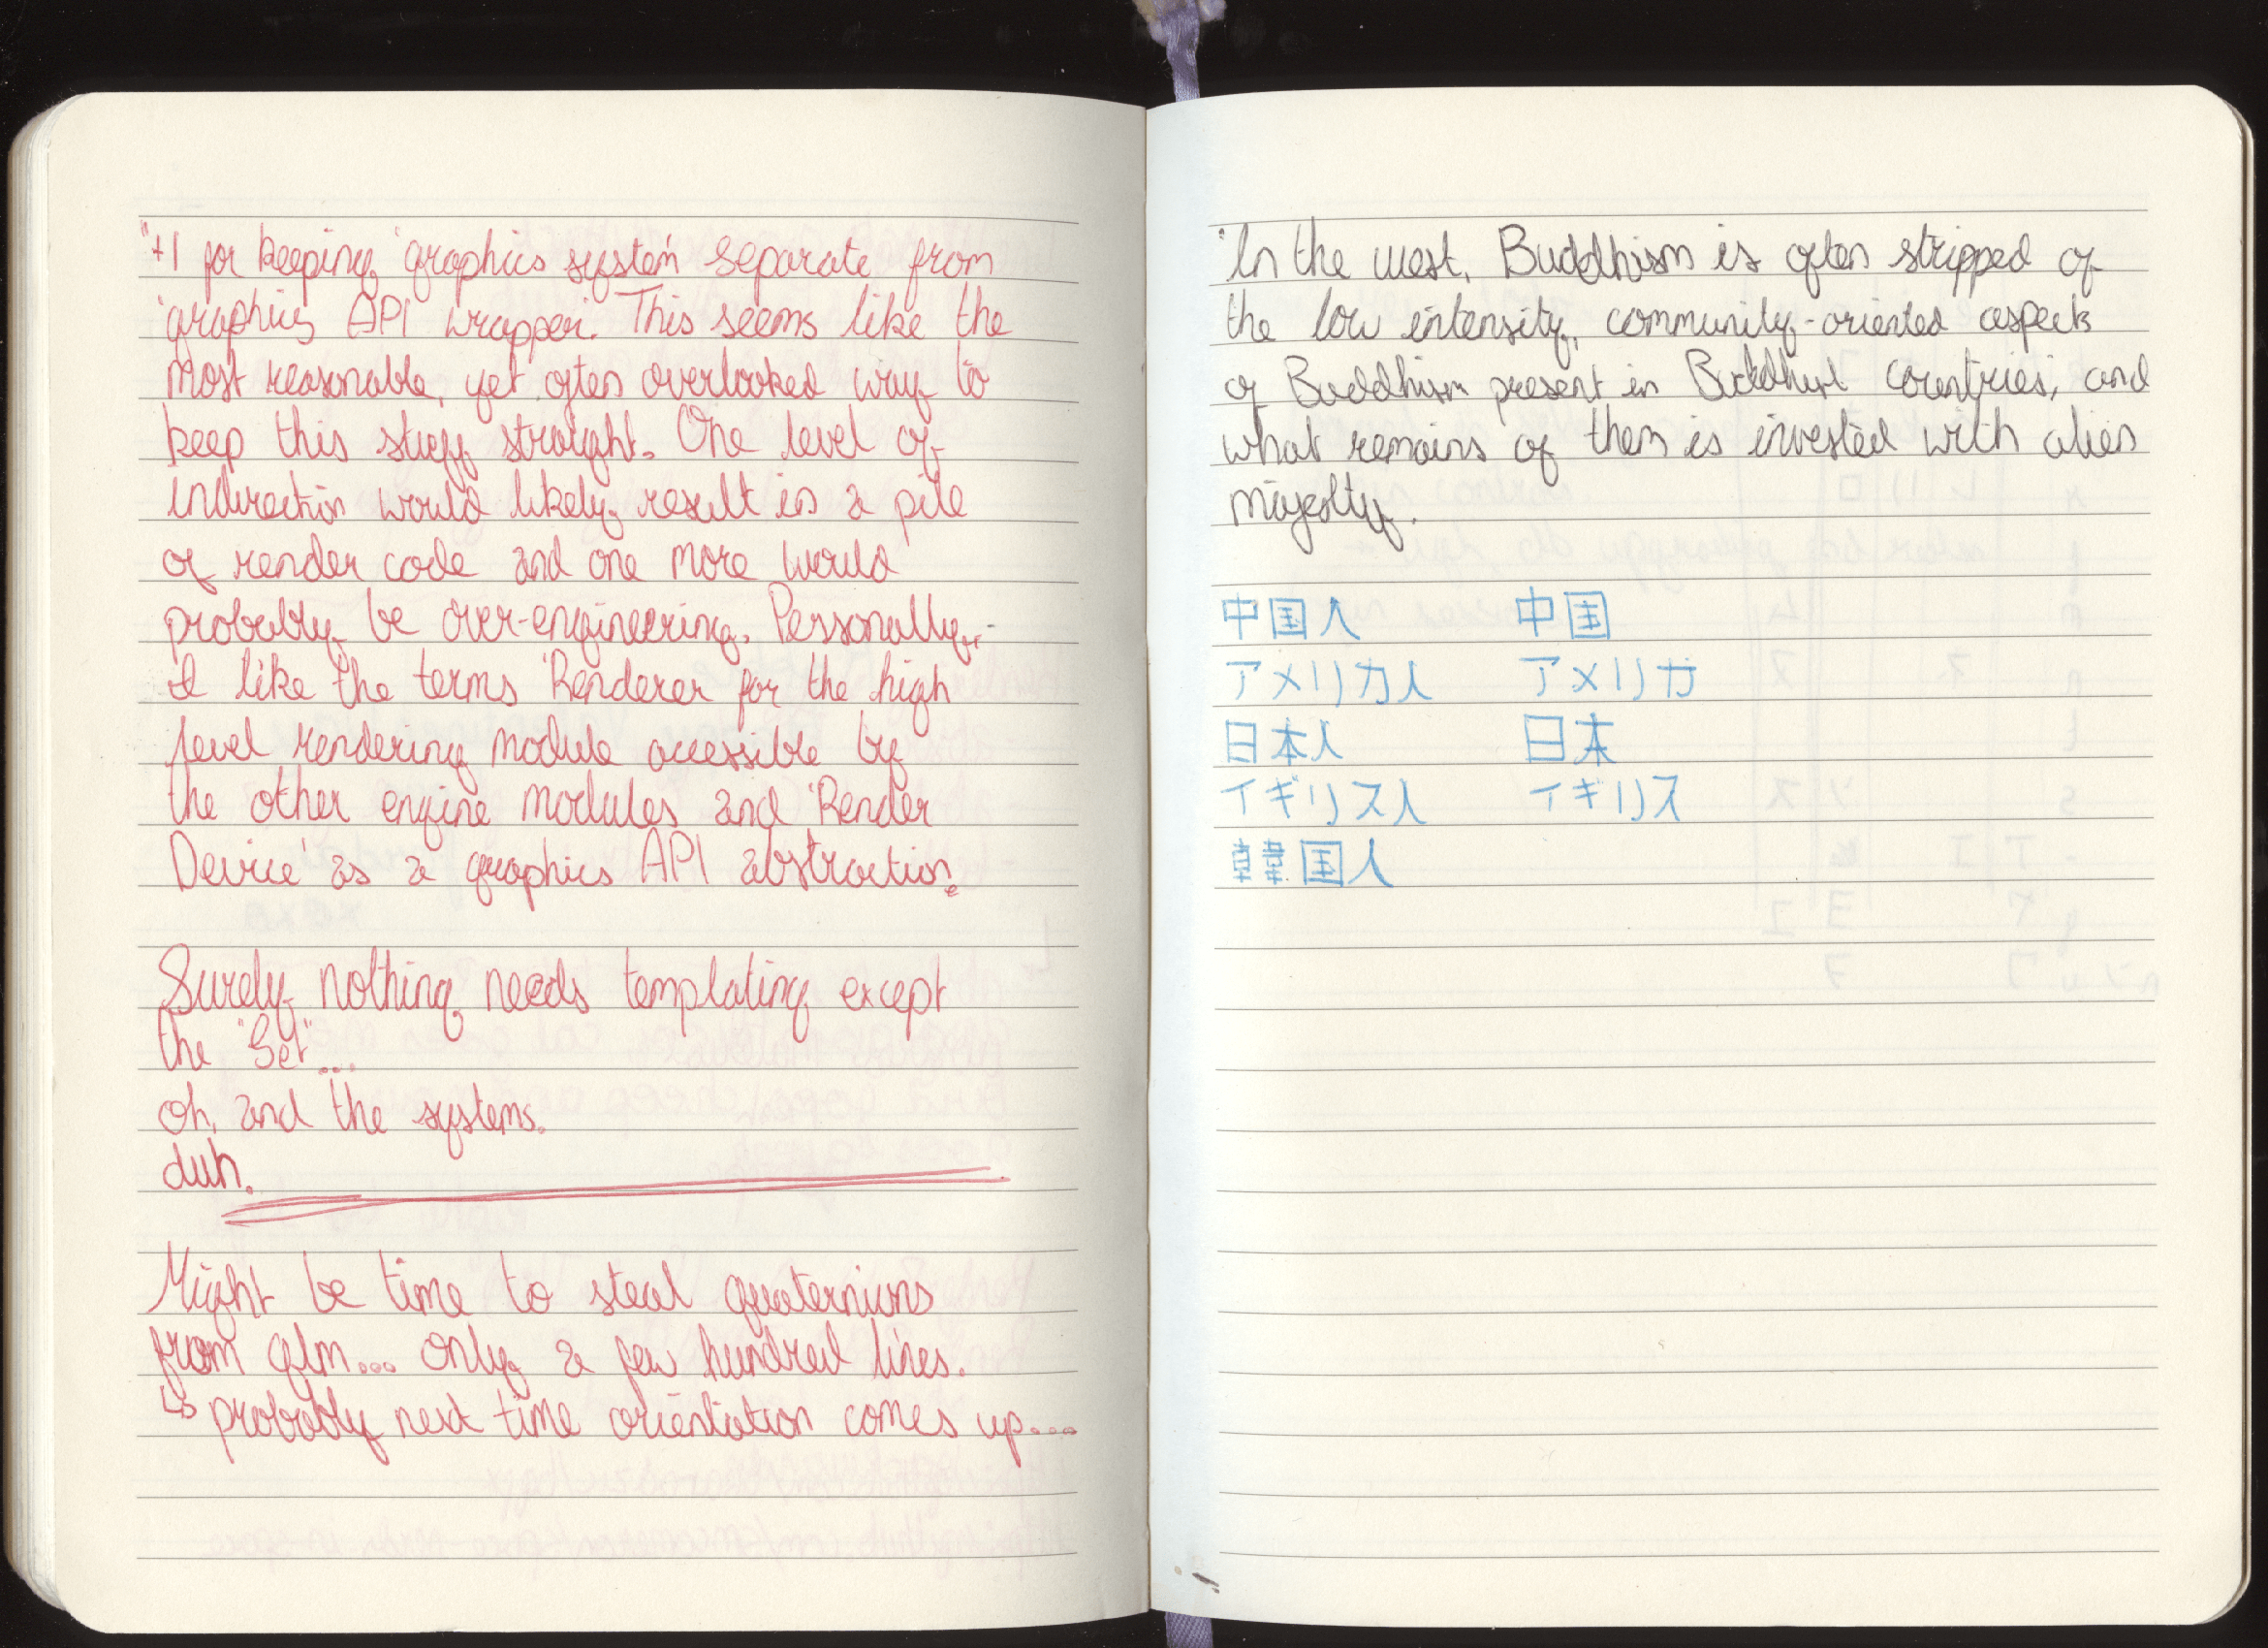 "+1 for keeping 'graphics system' separate from
'graphics API wrapper'. This seems like the
most reasonable, yet often overlooked way to
keep this stuff straight. One level of
indirection would likely result in a pile
of render code and one more would
probably be over-engineering. Personally,
I like the terms 'Renderer' for the high
level rendering module accessible by
the other engine modules and 'Render
Device' as a graphics API abstraction.
Surely nothing needs templating except
the "Set"...
oh, and the systems.
duh.
Might be time to steal quaternions
from glm... only a few hundred lines.
↳ probably next time orientation comes up...
"In the west, Buddhism is often stripped of
the low intensity, community-oriented aspects
of Buddhism present in Buddhist countries, and
what remains of them is invested with alien
majesty.
中国人 中国
アメリカ人 アメリカ
日本人 日本
イギリス人 イギリス
韓国人